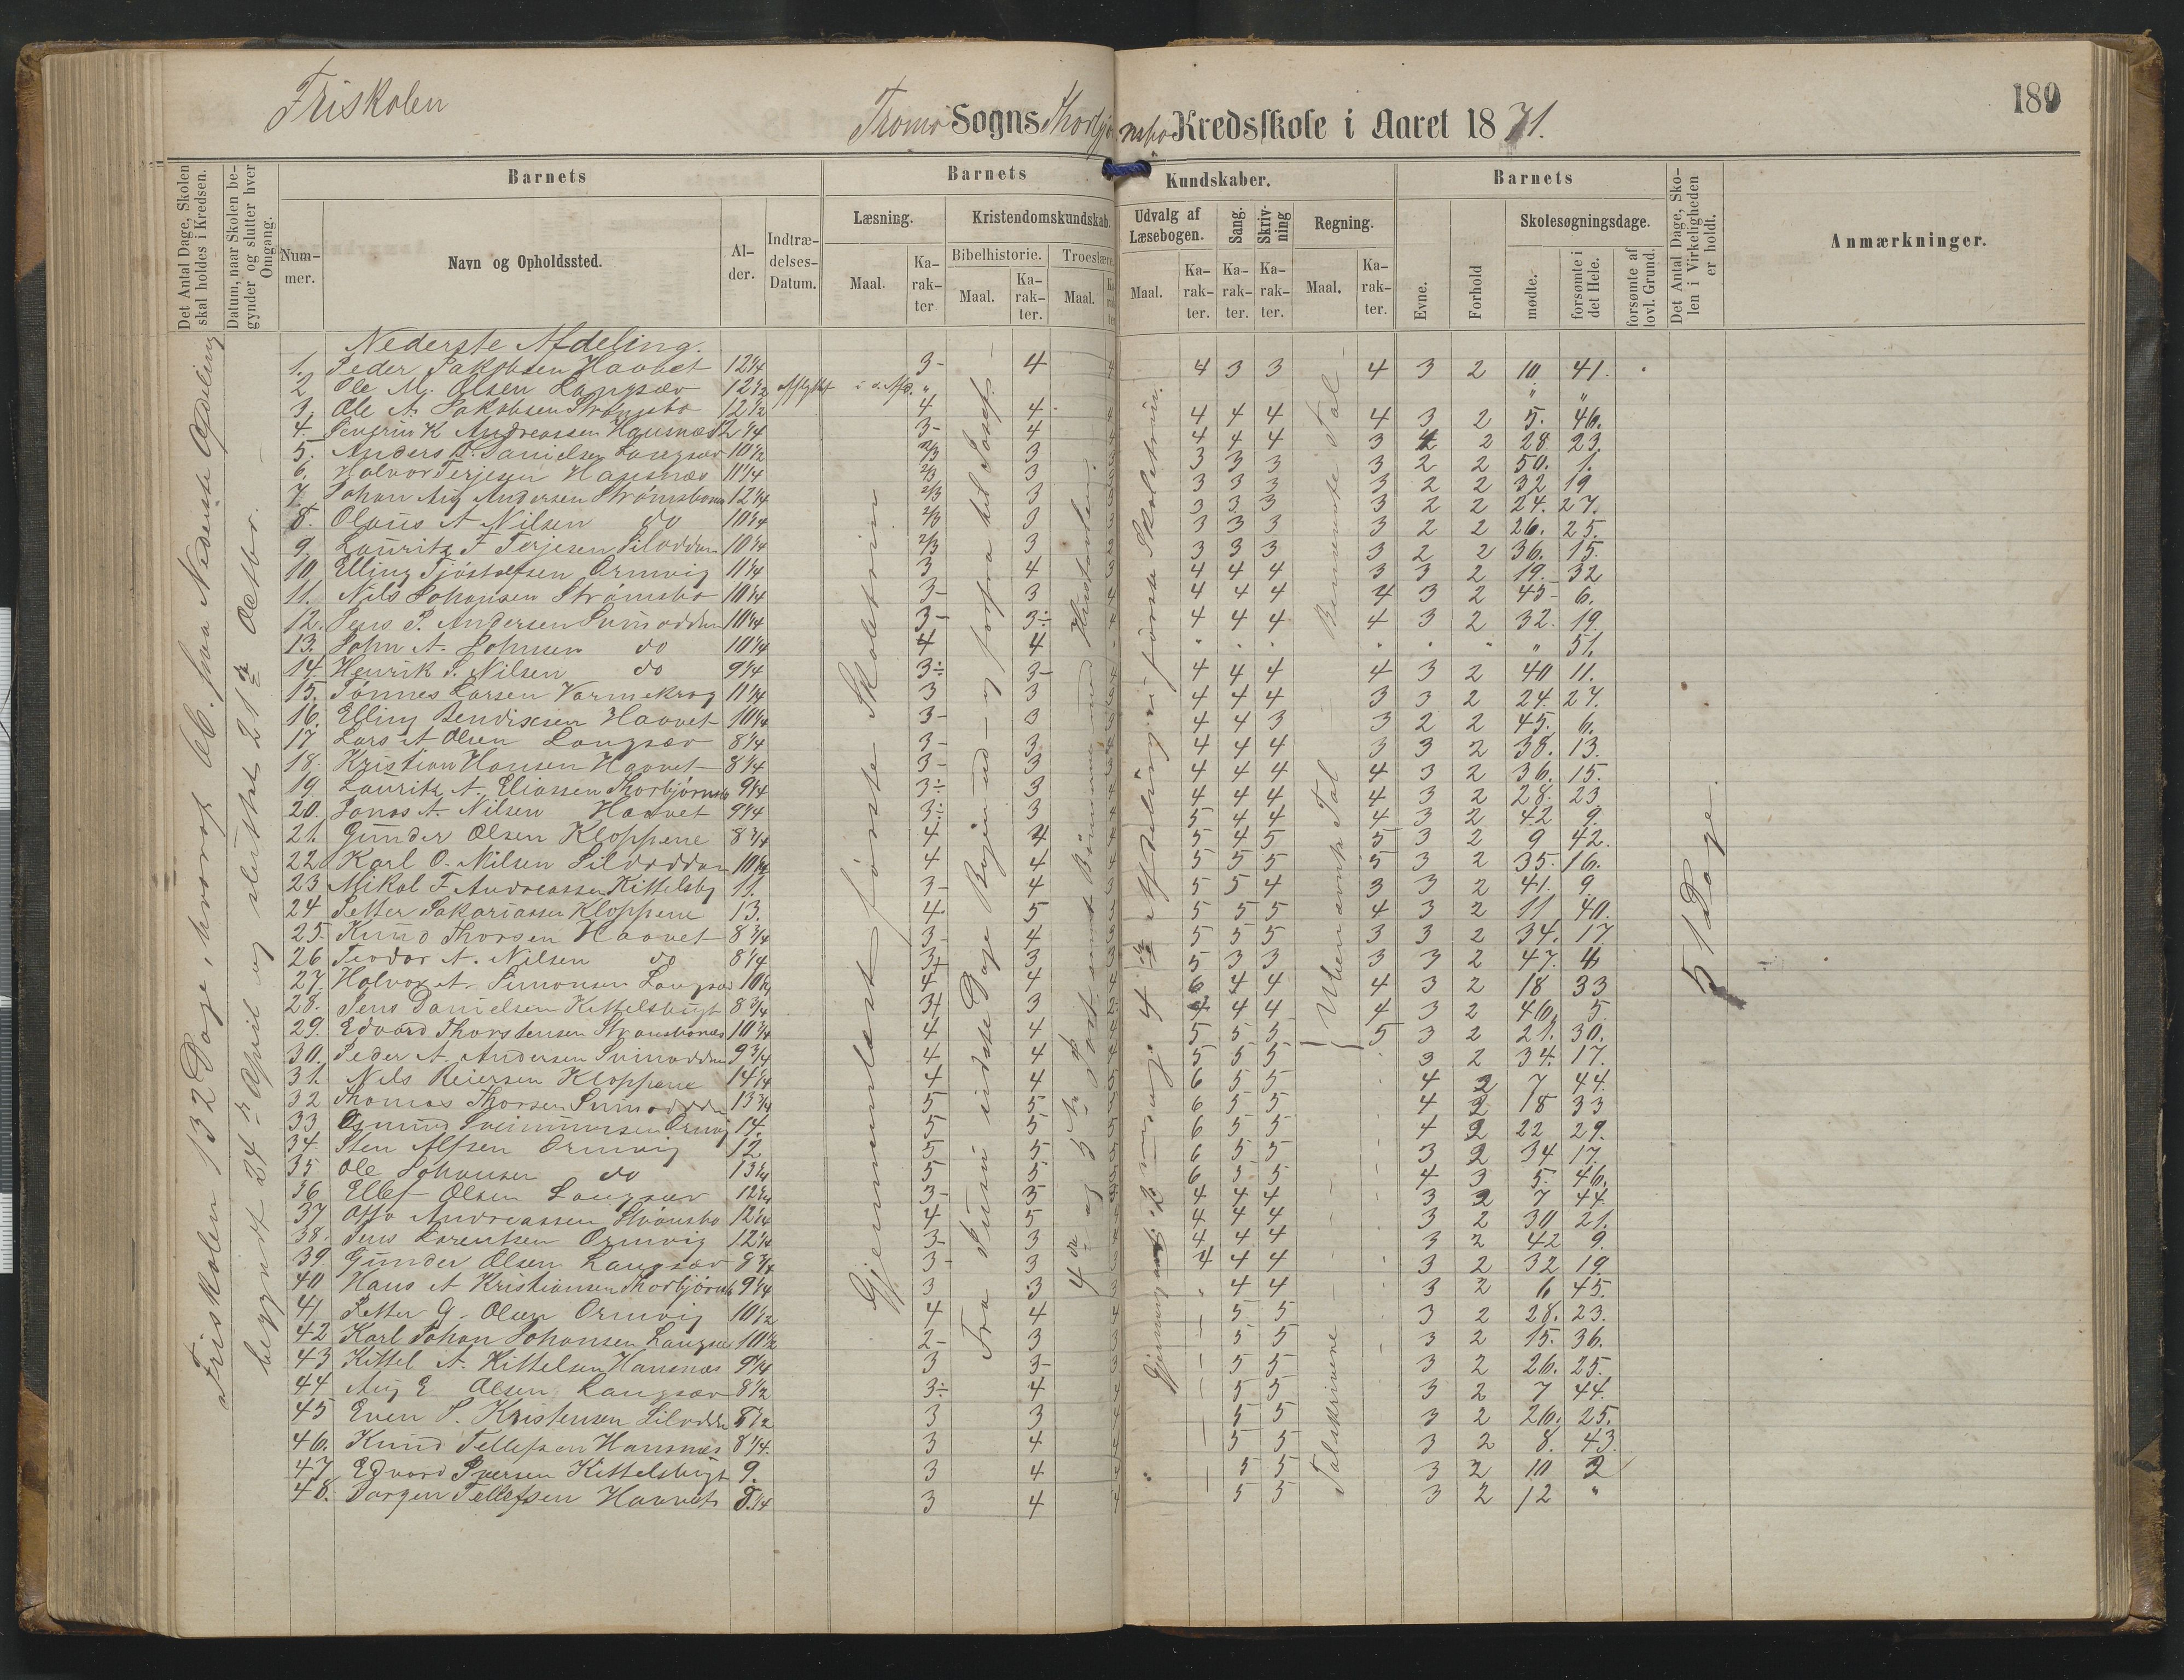 Friskolen
189
Tromø Sogns Thorbjørnsbo Kredsskole i Aaret 1871.
Det Antal Dage, Skolen skal holdes i Kredsen.
Datum, naar Skolen begynder og slutter hver Omgang.
Barnets
Barnets
Kundskaber.
Barnets
Det Antal Dage, Skolen i Virkeligheden er holdt.
Anmærkninger.
Nummer.
Navn og Opholdssted.
Alder.
Indtrædelses-Datum.
Læsning.
Kristendomskundskab.
Udvalg af Læsebogen.
Sang.
Skrivning
Regning.
Evne.
Forhold
Skolesøgningsdage.
Bibelhistorie.
Troeslære.
Maal.
Karakter
Maal.
Karakter.
Maal.
Karakter
Maal.
Karakter.
Karakter.
Karakter.
Maal.
Karakter.
mødte.
forsømte i det Hele.
forsømte af lovl. Grund.
Friskolen 132 Dage, hvoraf 66. paa Nederste Afdeling
begyndt 24de April og sluttet 21de Octbr.
Gjennemlæst første Skoletrin
Fra Juni sidste Dage Begyndt og forfra til Josef
4de og 5te Part samt Bønnerne med Hustavlen.
første Skoletrin.
Ubenævnte Tal
Benævnte Tal
Talskrivning
51 Dage.
Nederste Afdeling.
1. Peder Jakobsen Haavet 12 1/4 3- 4 4 4 3 3 4 3 2 10 41.
2 Ole M. Olsen Langsæv 12 1/2 Afflyttet " "
3. Ole A. Jakobsen Strømsbo 12 1/2 4 4 4 4 4 4 4 3 2 5. 46.
4. Severin K Andreassen Hansnæs 12 1/4 3- 4 4 4 4 3 4 2 28 23.
5. Anders D. Danielsen Langsæv 10 1/2 2/3 3 3 3 3 3 2 2 50. 1.
6. Halvor Terjesen Hansnæs 11 1/4 2/3 3 3 3 3 3 2 2 32 19
7. Johan Aug Andersen Strømsbonæs 12 1/4 2/3 3 3 3 3 3 2 2 24. 27.
8. Olaus A Nilsen do 10 1/4 2/3 3 3 3 3 3 2 2 26. 25.
9. Lauritz F Terjesen Siloddan 10 1/4 2/3 3 3 3 3 3 2 2 36. 15.
10. Elling Tjøstolfsen Ormvig 11 1/4 3 4 4 4 4 3 3 2 19. 32
11. Nils Johansen Strømsbo 10 1/4 3- 3 4 4 4 4 3 2 45- 6.
12. Jens P. Andersen Svinodden 10 1/4 3- 3÷ 4 4 4 4 3 2 32. 19.
13. John A. Johnsen do 10 1/4 4 4 " 51.
14. Henrik S. Nilsen do 9 1/4 3÷ 3- 4 4 4 4 3 2 40 11.
15. Tønnes Larsen Varmekrog 11 1/4 3 3 4 4 4 3 3 2 24. 27.
16. Elling Bendixsen Haavet 10 1/4 3- 3 4 4 3 3 2 2 45. 6.
17 Lars A Olsen Langsæv 8 1/4 3- 3 4 4 4 3 3 2 38. 13.
18. Kristian Hansen Haavet 8 1/4 3- 3 4 4 4 4 3 2 36. 15.
19. Lauritz A. Eliassen Thorbjørnsb 9 1/4 3÷ 3 4 4 4 4 3 2 28. 23
20. Jonas A. Nilsen Haavet 9 1/4 3÷ 3 5 4 4 4 3 2 42 9.
21. Gunder Olsen Kloppene 8 3/4 4 4 5 4 5 5 3 2 9 42.
22 Karl O. Nilsen Silodden 10 1/4 4 4 5 5 5 5 3 2 35. 16.
23 Mikal F. Andreassen Kittelsby 11. 3- 4 5 5 4 3 3 2 41. 9.
24 Petter Sakariassen Kloppene 13. 4 5 5 5 5 4 3 2 11 40.
25. Knud Thorsen Haavet 8 3/4 3- 4 5 5 5 3 3 2 34. 17.
26 Teodor A. Nilsen do 8 1/4 3+ 3 5 3 3 3 3 2 47. 4
27. Halvor A. Simonsen Langsæv 10 1/4 4 4 6 4 4 4 3 2 18 33
28. Jens Danielsen Kittelsbugt 8 3/4 3+ 3 4 4 4 4 3 2 46. 5.
29. Edvard Thorstensen Strømsbonæs 10 3/4 4 4 5 5 5 5 3 2 21. 30.
30. Peder A. Andersen Svinodden 9 3/4 4 4 5 5 5 3 2 34. 17.
31. Nils Reiersen Kloppene 14 1/4 4 4 6 5 5 4 2 7 44.
32 Thomas Thorsen Svinodden 13 3/4 5 5 6 5 5 4 2 18 33
33. Osmund Sveinumsen Ormvig 14. 5 5 6 5 5 4 2 22 29.
34. Sten Alfsen Ormvig 12 5 5 6 5 5 3 2 34 17.
35 Ole Johansen do 13 1/4 5 5 6 5 5 4 3 5. 46.
36 Ellef Olsen Langsæv 12 1/4 3- 3 4 4 4 3 2 7 44.
37 Otto Andreassen Strømsbo 12 1/4 4 5 4 4 4 3 2 30 21.
38. Jens Lorentsen Ormvig 12 1/4 3- 3 4 4 4 3 2 42 9.
39 Gunder Olsen Langsæv 8 3/4 3- 3 4 4 4 3 2 32 19
40 Hans A Kristiansen Thorbjørnsb 9 1/4 3 3 4 4 3 2 6 45.
41 Petter G. Olsen Ormvig 10 1/2 4 4 5 5 3 2 28. 23.
42 Karl Johan Johansen Langsæv 10 1/2 2- 3 5 5 3 2 15. 36.
43 Kittel A. Kittelsen Hansnæs 9 1/4 3 3- 5 5 3 2 26. 25.
44 Aug E Olsen Langsæv 8 1/2 3÷ 4 5 5 3 2 7 44.
45 Even S. Kristensen Silodden 8 1/2 3 3 5 5 3 2 26. 25.
46. Knud Tellefsen Hansnæs 8 1/4. 3 4 5 5 3 2 8. 43.
47 Edvard Iversen Kittelsbugt 9. 3 4 5 5 3 2 10 2
48. Jørgen Tellefsen Haavet 8. 1/4 3 4 5 5 3 2 12 "